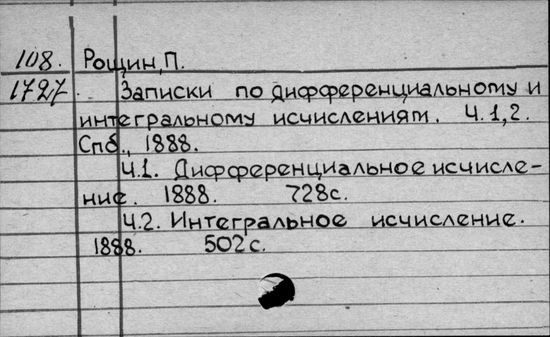 108. Рощин, П.
1727. Записки по дифференциальному и
интегральному исчислениям. Ч. 1, 2.
Спб., 1888.
Ч.1. Дифференциальное исчисле-
ние. 1888. 728с.
Ч.2. Интегральное исчисление.
1888. 502с.